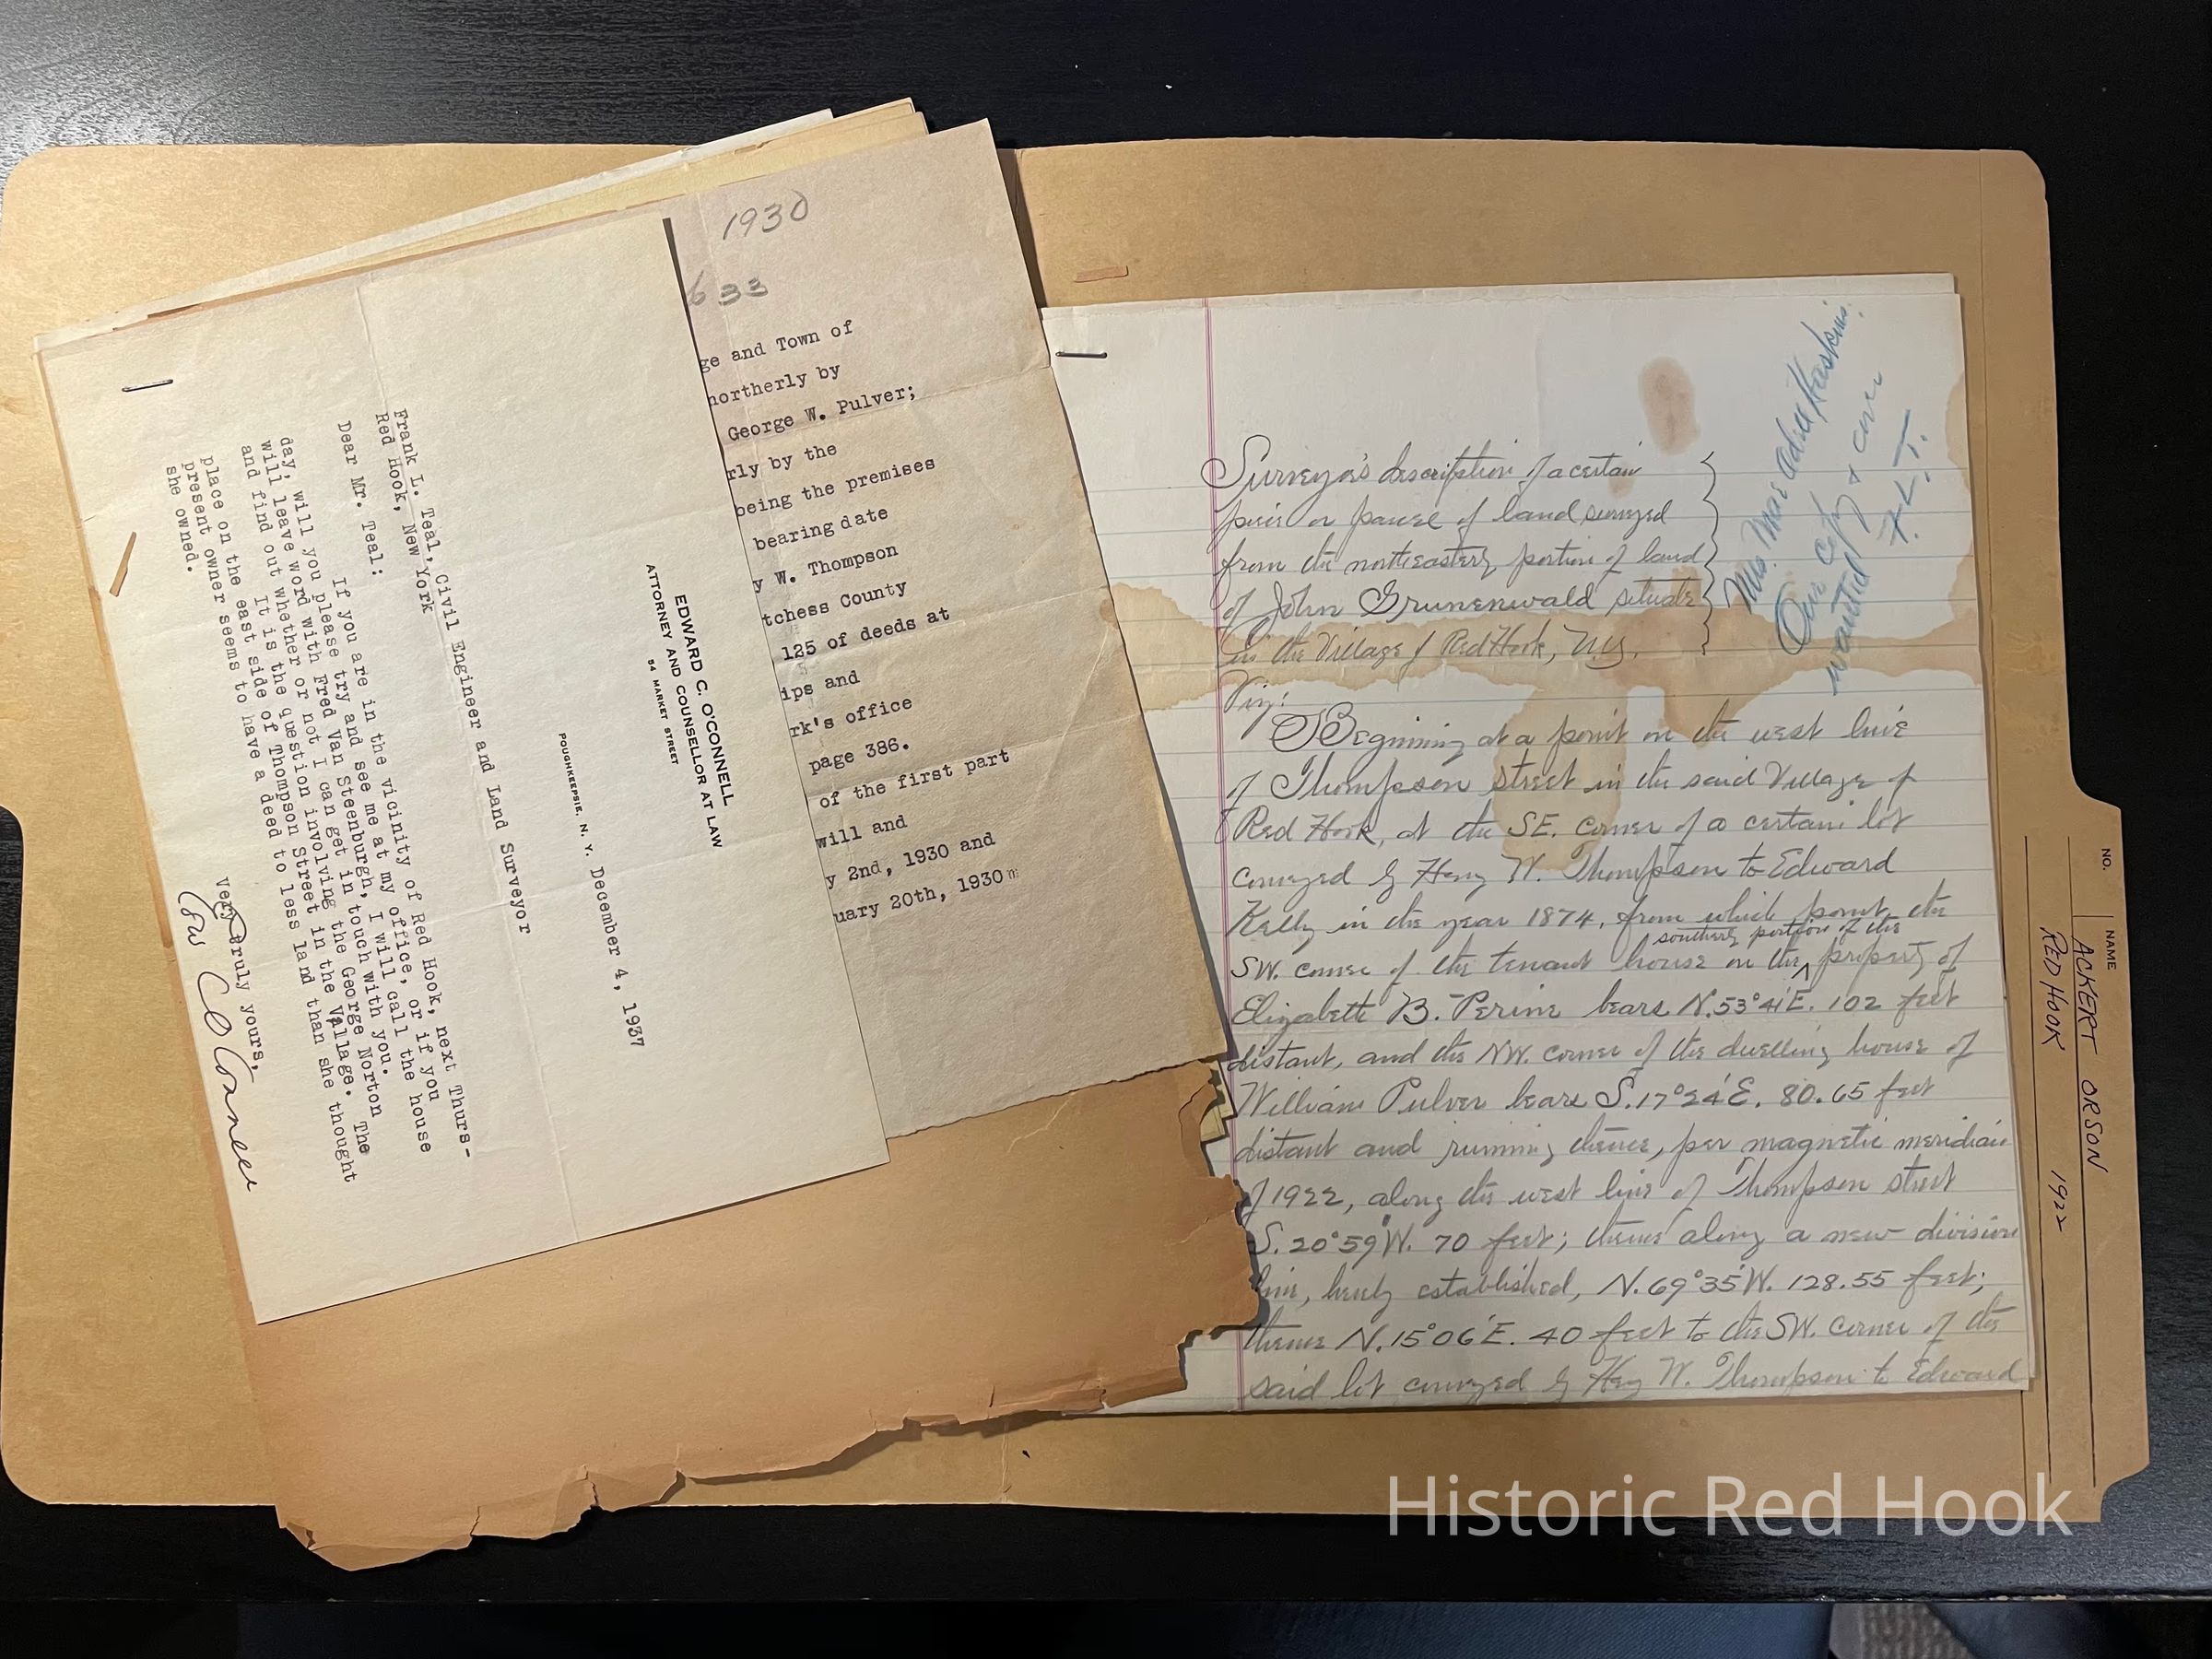 EDWARD C. O'CONNELL
ATTORNEY AND COUNSELLOR AT LAW
54 MARKET STREET
POUGHKEEPSIE, N. Y. December 4, 1937
Frank L. Teal, Civil Engineer and Land Surveyor
Red Hook, New York
Dear Mr. Teal:
If you are in the vicinity of Red Hook, next Thurs-
day, will you please try and see me at my office, or if you
will leave word with Fred Van Steenburgh, I will call the house
and find out whether or not I can get in touch with you.
It is the question involving the George Norton
place on the east side of Thompson Street in the Village. The
present owner seems to have a deed to less land than she thought
she owned.
Very truly yours,
1930
633
ge and Town of
northerly by
George W. Pulver;
rly by the
being the premises
bearing date
y W. Thompson
tchess County
125 of deeds at
ips and
rk's office
page 386.
of the first part
will and
y 2nd, 1930 and
uary 20th, 1930
Mrs. Mae Adria Haskins.
One copy & cover
wanted F.L.T.
Surveyor's description of a certain
piece or parcel of land surveyed
from the northeasterly portion of land
of John Grunenwald situate
in the Village of Red Hook, N.Y.
Viz:
Beginning at a point on the west line
of Thompson street in the said Village of
Red Hook, at the SE. corner of a certain lot
conveyed by Henry W. Thompson to Edward
Kelly in the year 1874, from which point the
southerly portion of the
SW. corner of the tenant house on the property of
Elizabeth B. Perine bears N.53°41'E. 102 feet
distant, and the NW. corner of the dwelling house of
William Pulver bears S.17°24'E. 80.65 feet
distant and running thence, per magnetic meridian
of 1922, along the west line of Thompson street
S. 20°59'W. 70 feet; thence along a new division
line, hereby established, N.69°35'W. 128.55 feet;
thence N.15°06'E. 40 feet to the SW. corner of the
said lot conveyed by Henry W. Thompson to Edward
NO.
NAME
ACKERT ORSON
RED HOOK 1922
Historic Red Hook